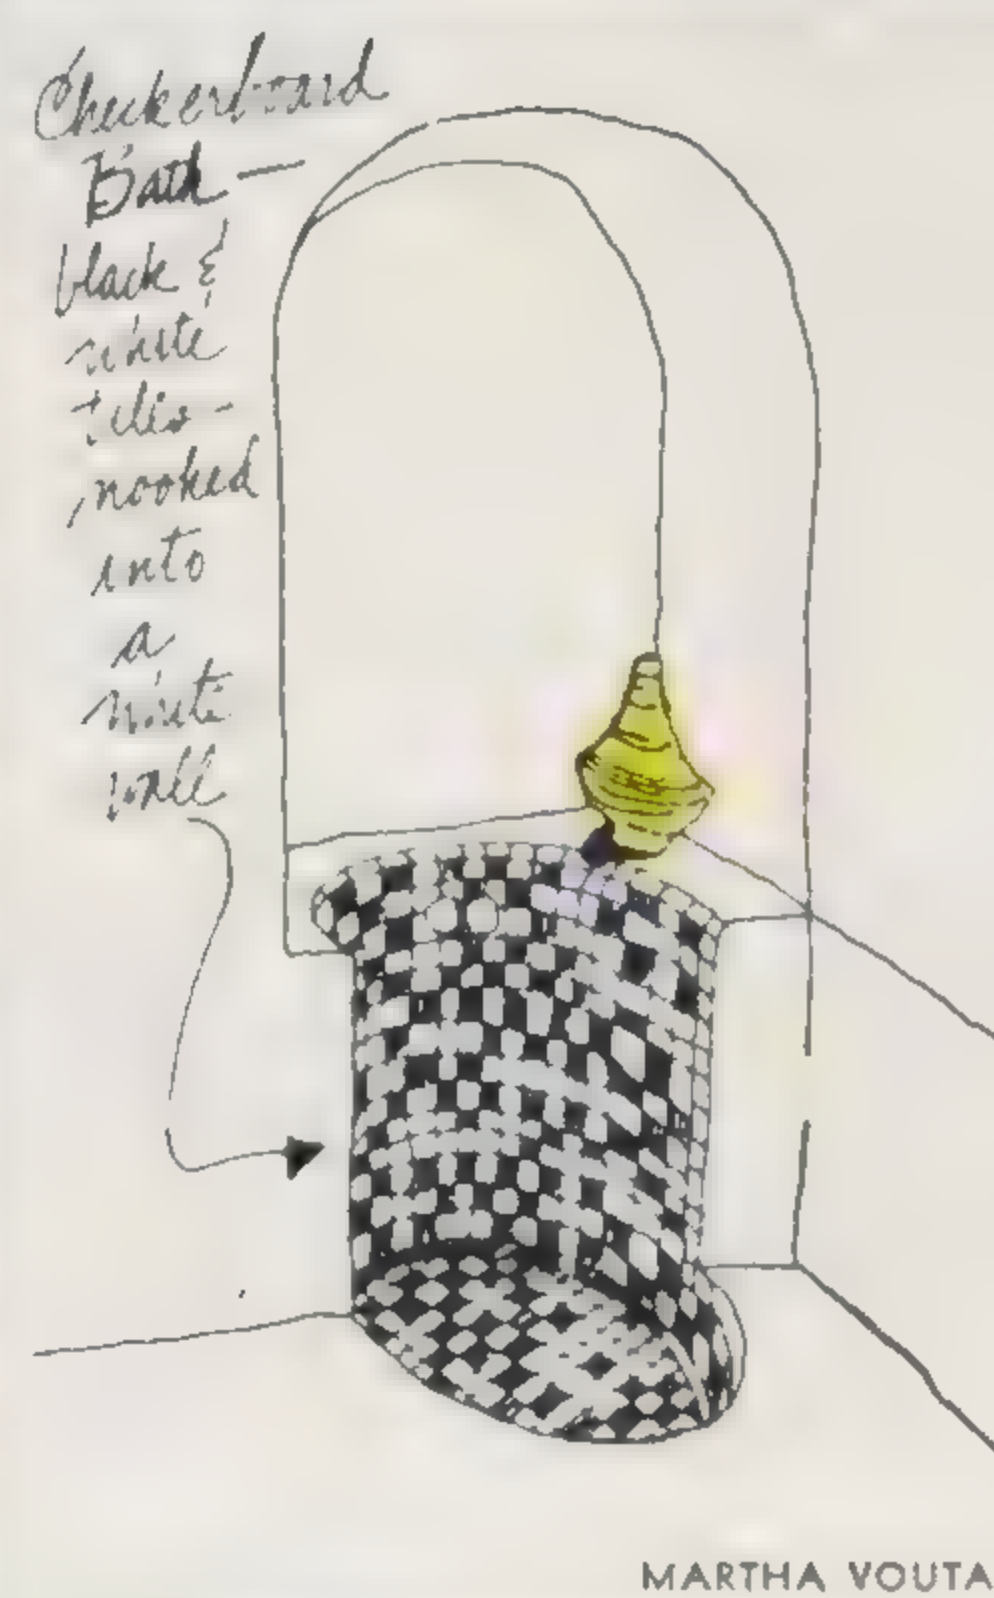 Checkerboard
Bath —
black &
white
tiles -
nooked
into
a
white
wall
MARTHA VOUTA